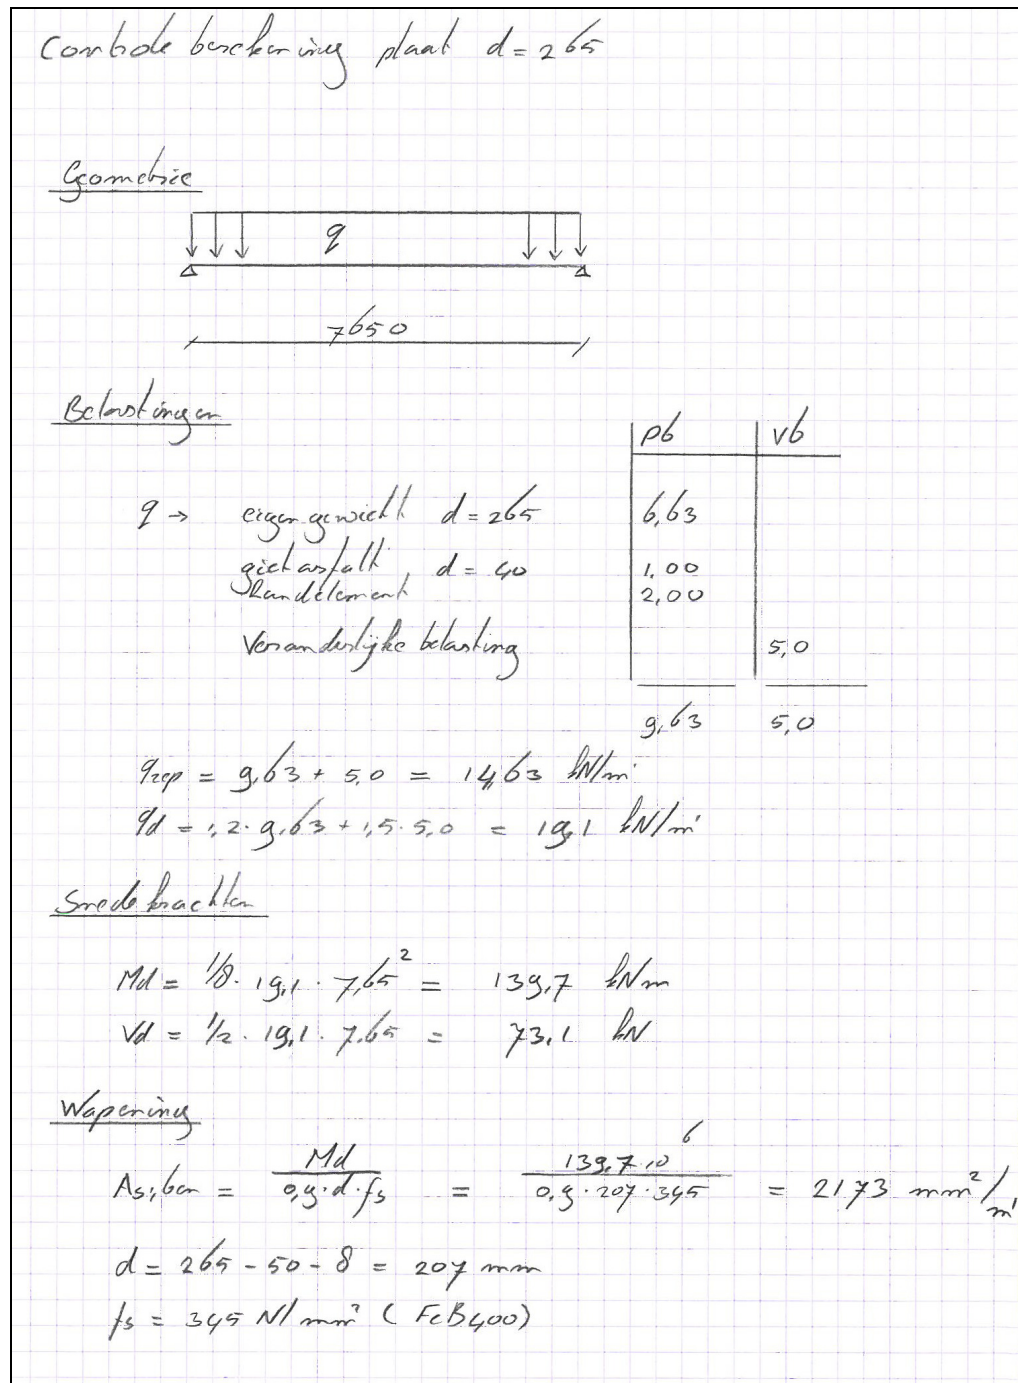 Controle berekening plaat d = 265
Geometrie
q
7650
Belastingen
pb vb
q → eigen gewicht d = 265 6,63
gietasfalt d = 40 1,00
Randelement 2,00
Veranderlijke belasting 5,0
9,63 5,0
qrep = 9,63 + 5,0 = 14,63 kN/m'
qd = 1,2 · 9,63 + 1,5 · 5,0 = 19,1 kN/m'
Snedekrachten
Md = 1/8 · 19,1 · 7,65² = 139,7 kNm
Vd = 1/2 · 19,1 · 7,65 = 73,1 kN
Wapening
As;ben = Md / 0,9 · d · fs = 139,7 · 10⁶ / 0,9 · 207 · 345 = 2173 mm²/m'
d = 265 - 50 - 8 = 207 mm
fs = 345 N/mm² (FeB400)